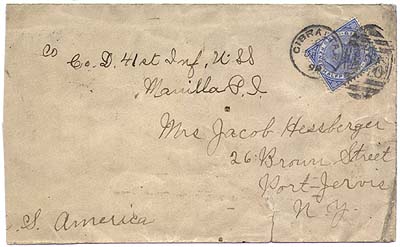 co Co. D. 41st Inf, U S S
Manilla P. I
GIBRAL
Mrs Jacob Hessberger
26 Brown Street
Port-Jervis
N. Y.
S. America